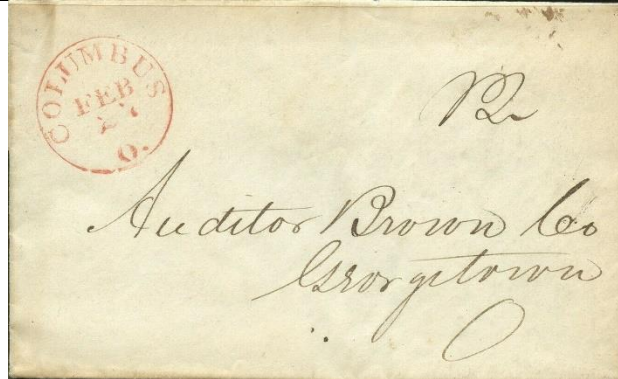 COLUMBUS
FEB
O.
Auditor Brown Co
Georgetown
O